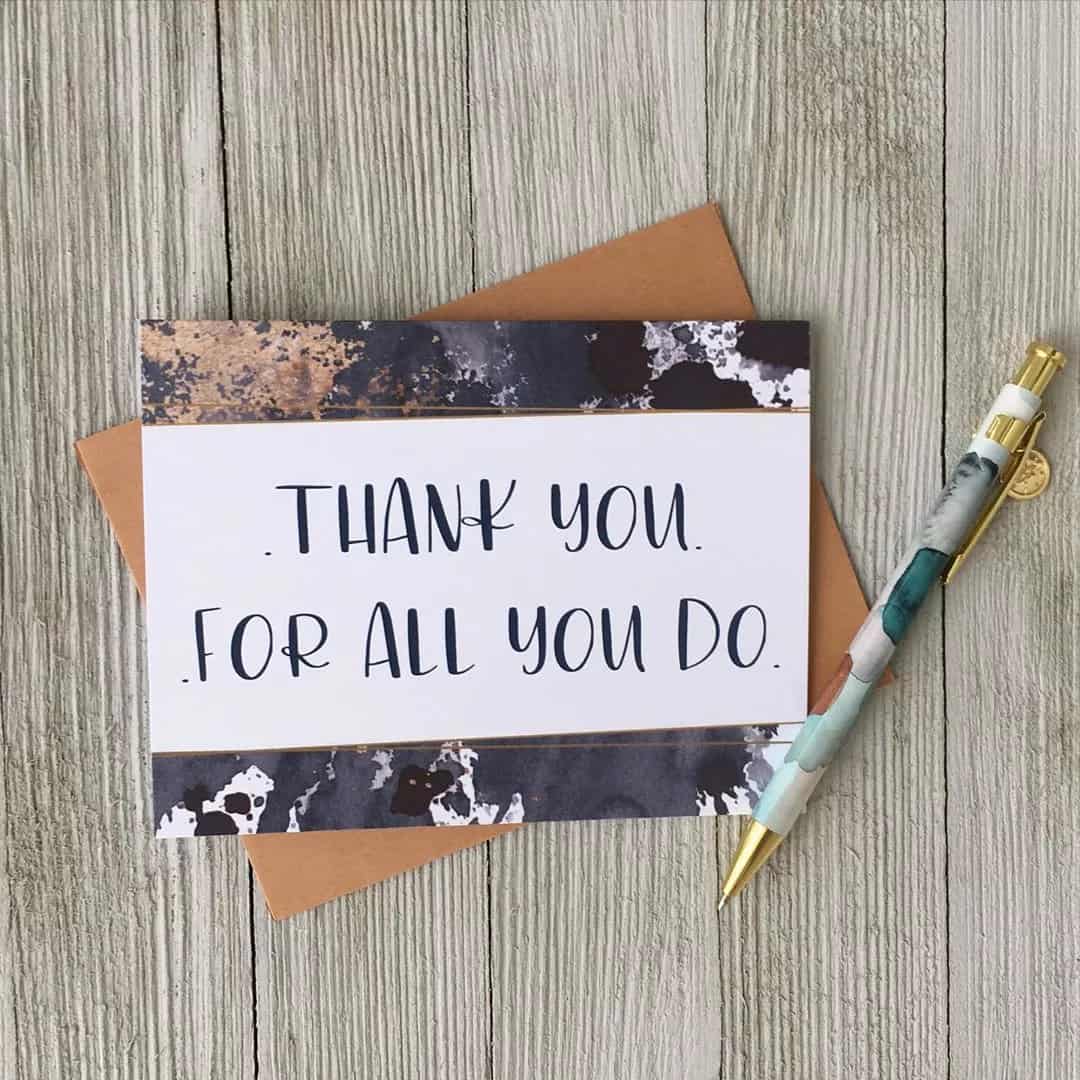 .THANK YOU.
.FOR ALL YOU DO.